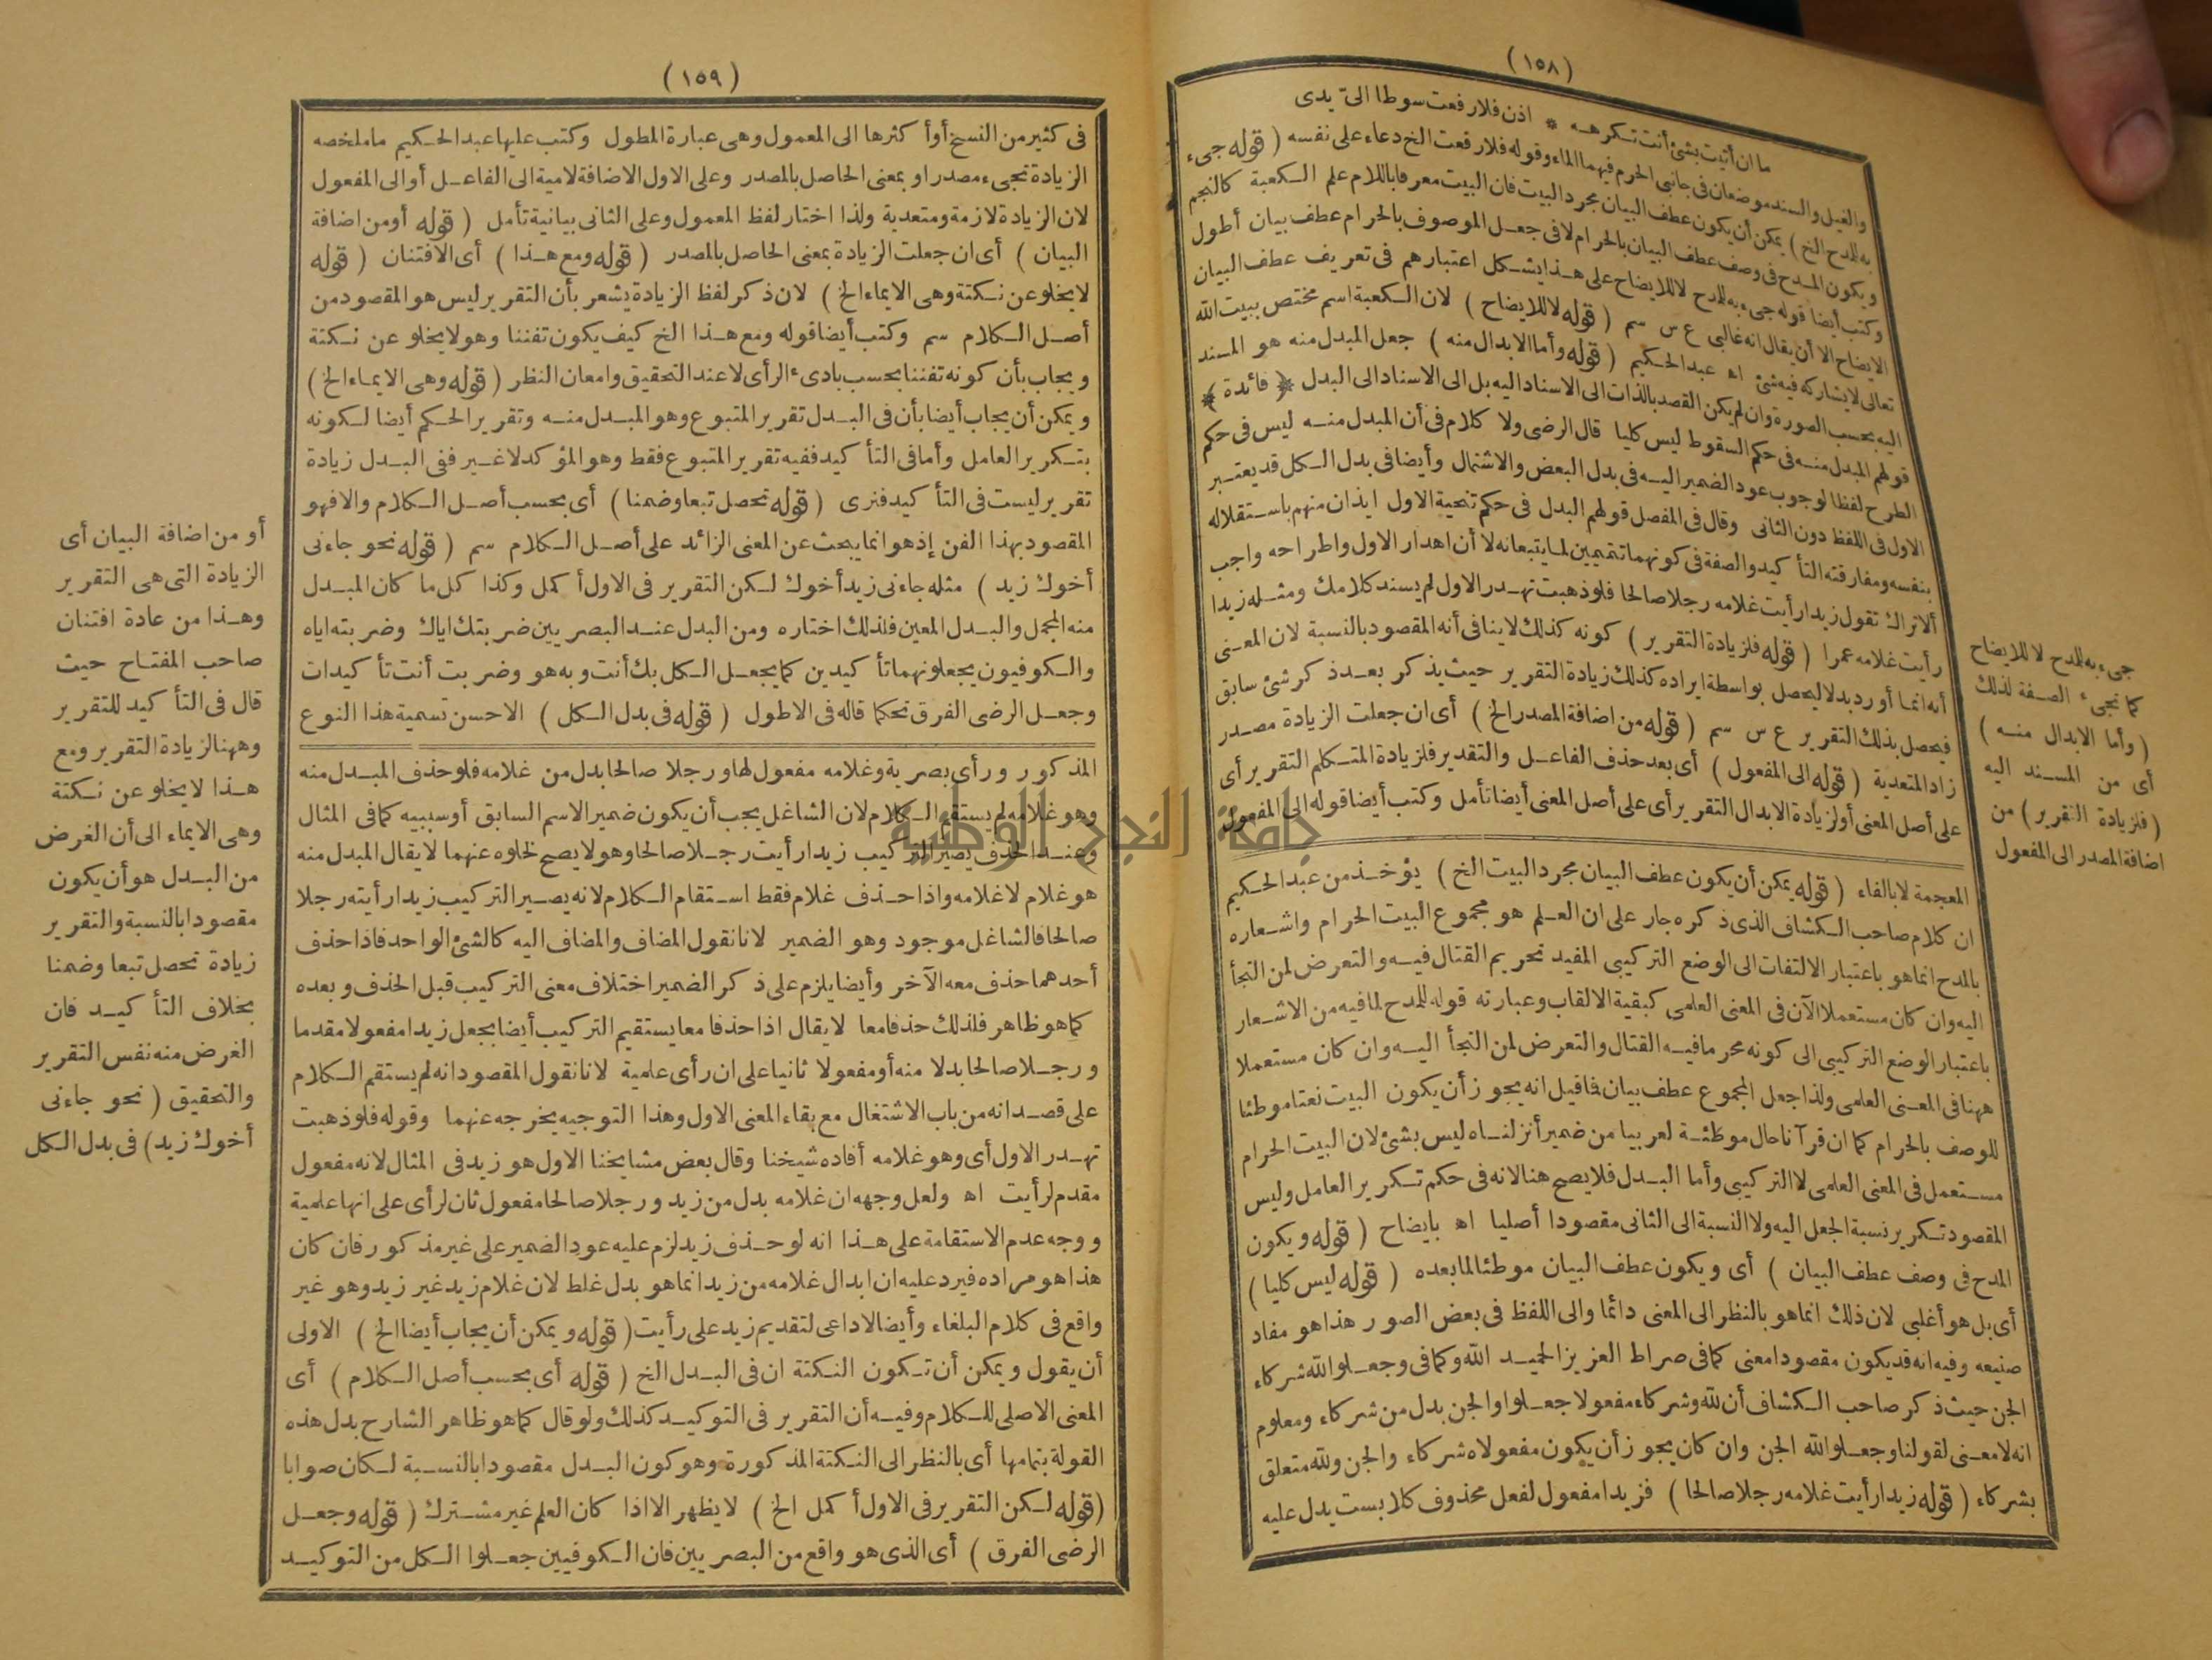 (١٥٨)
ما ان أتيت بشئ أنت تكرهه * اذن فلا رفعت سوطا الىّ يدى
والغيل والسند موضعان فى جانبى الحرم فيهما الماء وقوله فلا رفعت الخ دعاء على نفسه (قوله جىء
به للمدح الخ) يمكن أن يكون عطف البيان مجرد البيت فان البيت معرفا باللام علم الكعبة كالنجم
ويكون المدح فى وصف عطف البيان بالحرام لا فى جعل الموصوف بالحرام عطف بيان أطول
وكتب أيضا قوله جىء به للمدح لا للايضاح على هذا يشكل اعتبارهم فى تعريف عطف البيان
الايضاح الا أن يقال انه غالبى ع س سم (قوله لا للايضاح) لان الكعبة اسم مختص ببيت الله
تعالى لا يشاركه فيه شئ اه عبد الحكيم (قوله وأما الابدال منه) جعل المبدل منه هو المسند
اليه بحسب الصورة وان لم يكن القصد بالذات الى الاسناد اليه بل الى الاسناد الى البدل ﴿فائدة﴾
قولهم المبدل منه فى حكم السقوط ليس كليا قال الرضى ولا كلام فى أن المبدل منه ليس فى حكم
الطرح لفظا لوجوب عود الضمير اليه فى بدل البعض والاشتمال وأيضا فى بدل الكل قد يعتبر
الاول فى اللفظ دون الثانى وقال فى المفصل قولهم البدل فى حكم تنحية الاول ايذان منهم باستقلاله
بنفسه ومفارقته التأكيد والصفة فى كونهما تتميمين لما يتبعانه لا أن اهدار الاول واطراحه واجب
ألا تراك تقول زيدا رأيت غلامه رجلا صالحا فلو ذهبت تهدر الاول لم يسند كلامك ومثله زيدا
رأيت غلامه عمرا (قوله فلزيادة التقرير) كونه كذلك لا ينافى أنه المقصود بالنسبة لان المعنى
أنه انما أورد بدلا ليحصل بواسطة ايراده كذلك زيادة التقرير حيث يذكر بعد ذكر شئ سابق
فيحصل بذلك التقرير ع س سم (قوله من اضافة المصدر الخ) أى ان جعلت الزيادة مصدر
زاد المتعدية (قوله الى المفعول) أى بعد حذف الفاعل والتقدير فلزيادة المتكلم التقرير أى
على أصل المعنى أو لزيادة الابدال التقرير أى على أصل المعنى أيضا تأمل وكتب أيضا قوله الى المفعول
المعجمة لا بالفاء (قوله يمكن أن يكون عطف البيان مجرد البيت الخ) يؤخذ من عبد الحكيم
ان كلام صاحب الكشاف الذى ذكره جار على ان العلم هو مجموع البيت الحرام واشعاره
بالمدح انما هو باعتبار الالتفات الى الوضع التركيبى المفيد تحريم القتال فيه والتعرض لمن التجأ
اليه وان كان مستعملا الآن فى المعنى العلمى كبقية الالقاب وعبارته قوله للمدح لما فيه من الاشعار
باعتبار الوضع التركيبى الى كونه محرما فيه القتال والتعرض لمن التجأ اليه وان كان مستعملا
ههنا فى المعنى العلمى ولذا جعل المجموع عطف بيان فما قيل انه يجوز أن يكون البيت نعتا موطئا
للوصف بالحرام كما ان قرآنا حال موطئة لعربيا من ضمير أنزلناه ليس بشئ لان البيت الحرام
مستعمل فى المعنى العلمى لا التركيبى وأما البدل فلا يصح هنا لانه فى حكم تكرير العامل وليس
المقصود تكرير نسبة الجعل اليه ولا النسبة الى الثانى مقصودا أصليا اه بايضاح (قوله ويكون
المدح فى وصف عطف البيان) أى ويكون عطف البيان موطئا لما بعده (قوله ليس كليا)
أى بل هو أغلبى لان ذلك انما هو بالنظر الى المعنى دائما والى اللفظ فى بعض الصور هذا هو مفاد
صنيعه وفيه انه قد يكون مقصودا معنى كما فى صراط العزيز الحميد الله وكما فى وجعلوا لله شركاء
الجن حيث ذكر صاحب الكشاف أن لله وشركاء مفعولا جعلوا والجن بدل من شركاء ومعلوم
انه لا معنى لقولنا وجعلوا لله الجن وان كان يجوز أن يكون مفعولاه شركاء والجن ولله متعلق
بشركاء (قوله زيدا رأيت غلامه رجلا صالحا) فزيدا مفعول لفعل محذوف كلابست يدل عليه
جىء به للمدح لا للايضاح
كما تجىء الصفة لذلك
(وأما الابدال منه)
أى من المسند اليه
(فلزيادة التقرير) من
اضافة المصدر الى المفعول
(١٥٩)
فى كثير من النسخ أو أكثرها الى المعمول وهى عبارة المطول وكتب عليها عبد الحكيم ما ملخصه
الزيادة تجىء مصدرا وبمعنى الحاصل بالمصدر وعلى الاول الاضافة لامية الى الفاعل أو الى المفعول
لان الزيادة لازمة ومتعدية ولذا اختار لفظ المعمول وعلى الثانى بيانية تأمل (قوله أو من اضافة
البيان) أى ان جعلت الزيادة بمعنى الحاصل بالمصدر (قوله ومع هذا) أى الافتنان (قوله
لا يخلو عن نكتة وهى الايماء الخ) لان ذكر لفظ الزيادة يشعر بأن التقرير ليس هو المقصود من
أصل الكلام سم وكتب أيضا قوله ومع هذا الخ كيف يكون تفننا وهو لا يخلو عن نكتة
ويجاب بأن كونه تفننا بحسب بادىء الرأى لا عند التحقيق وامعان النظر (قوله وهى الايماء الخ)
ويمكن أن يجاب أيضا بأن فى البدل تقرير المتبوع وهو المبدل منه وتقرير الحكم أيضا لكونه
بتكرير العامل وأما فى التأكيد ففيه تقرير المتبوع فقط وهو المؤكد لا غير ففى البدل زيادة
تقرير ليست فى التأكيد فنرى (قوله تحصل تبعا وضمنا) أى بحسب أصل الكلام والا فهو
المقصود بهذا الفن إذ هو انما يبحث عن المعنى الزائد على أصل الكلام سم (قوله نحو جاءنى
أخوك زيد) مثله جاءنى زيد أخوك لكن التقرير فى الاول أكمل وكذا كل ما كان المبدل
منه المجمل والبدل المعين فلذلك اختاره ومن البدل عند البصريين ضربتك اياك وضربته اياه
والكوفيون يجعلونهما تأكيدين كما يجعل الكل بك أنت وبه هو وضربت أنت تأكيدات
وجعل الرضى الفرق تحكما قاله فى الاطول (قوله فى بدل الكل) الاحسن تسمية هذا النوع
المذكور ورأى بصرية وغلامه مفعول لها ورجلا صالحا بدل من غلامه فلو حذف المبدل منه
وهو غلامه لم يستقم الكلام لان الشاغل يجب أن يكون ضمير الاسم السابق أو سببيه كما فى المثال
وعند الحذف يصير التركيب زيدا رأيت رجلا صالحا وهو لا يصح لخلوه عنهما لا يقال المبدل منه
هو غلام لا غلامه واذا حذف غلام فقط استقام الكلام لانه يصير التركيب زيدا رأيته رجلا
صالحا فالشاغل موجود وهو الضمير لانا نقول المضاف والمضاف اليه كالشئ الواحد فاذا حذف
أحدهما حذف معه الآخر وأيضا يلزم على ذكر الضمير اختلاف معنى التركيب قبل الحذف وبعده
كما هو ظاهر فلذلك حذفا معا لا يقال اذا حذفا معا يستقيم التركيب أيضا بجعل زيدا مفعولا مقدما
ورجلا صالحا بدلا منه أو مفعولا ثانيا على ان رأى علمية لانا نقول المقصود انه لم يستقم الكلام
على قصد انه من باب الاشتغال مع بقاء المعنى الاول وهذا التوجيه يخرجه عنهما وقوله فلو ذهبت
تهدر الاول أى وهو غلامه أفاده شيخنا وقال بعض مشايخنا الاول هو زيد فى المثال لانه مفعول
مقدم لرأيت اه ولعل وجهه ان غلامه بدل من زيد ورجلا صالحا مفعول ثان لرأى على انها علمية
ووجه عدم الاستقامة على هذا انه لو حذف زيد لزم عليه عود الضمير على غير مذكور فان كان
هذا هو مراده فيرد عليه ان ابدال غلامه من زيد انما هو بدل غلط لان غلام زيد غير زيد وهو غير
واقع فى كلام البلغاء وأيضا لا داعى لتقديم زيد على رأيت (قوله ويمكن أن يجاب أيضا الخ) الاولى
أن يقول ويمكن أن تكون النكتة ان فى البدل الخ (قوله أى بحسب أصل الكلام) أى
المعنى الاصلى للكلام وفيه أن التقرير فى التوكيد كذلك ولو قال كما هو ظاهر الشارح بدل هذه
القولة بتمامها أى بالنظر الى النكتة المذكورة وهو كون البدل مقصودا بالنسبة لكان صوابا
(قوله لكن التقرير فى الاول أكمل الخ) لا يظهر الا اذا كان العلم غير مشترك (قوله وجعل
الرضى الفرق) أى الذى هو واقع من البصريين فان الكوفيين جعلوا الكل من التوكيد
أو من اضافة البيان أى
الزيادة التى هى التقرير
وهذا من عادة افتنان
صاحب المفتاح حيث
قال فى التأكيد للتقرير
وههنا لزيادة التقرير ومع
هذا لا يخلو عن نكتة
وهى الايماء الى أن الغرض
من البدل هو أن يكون
مقصودا بالنسبة والتقرير
زيادة تحصل تبعا وضمنا
بخلاف التأكيد فان
الغرض منه نفس التقرير
والتحقيق (نحو جاءنى
أخوك زيد) فى بدل الكل
جامعة النجاح الوطنية